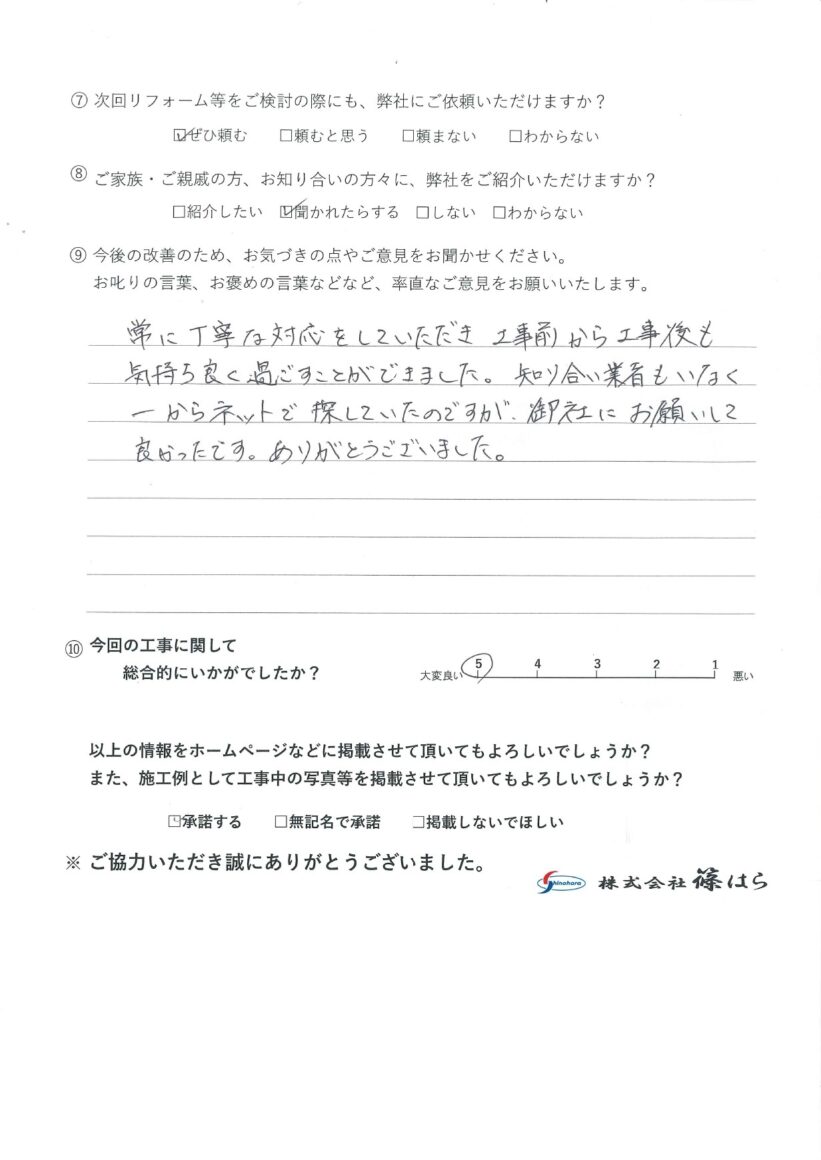 ⑦ 次回リフォーム等をご検討の際にも、弊社にご依頼いただけますか？
☑ぜひ頼む □頼むと思う □頼まない □わからない
⑧ ご家族・ご親戚の方、お知り合いの方々に、弊社をご紹介いただけますか？
□紹介したい ☑聞かれたらする □しない □わからない
⑨ 今後の改善のため、お気づきの点やご意見をお聞かせください。
お叱りの言葉、お褒めの言葉などなど、率直なご意見をお願いいたします。
常に丁寧な対応をしていただき 工事前から工事後も
気持ち良く過ごすことができました。知り合い業者もいなく
一からネットで探していたのですが、御社にお願いして
良かったです。ありがとうございました。
⑩ 今回の工事に関して
総合的にいかがでしたか？
大変良い 5 4 3 2 1 悪い
以上の情報をホームページなどに掲載させて頂いてもよろしいでしょうか？
また、施工例として工事中の写真等を掲載させて頂いてもよろしいでしょうか？
☑承諾する □無記名で承諾 □掲載しないでほしい
※ ご協力いただき誠にありがとうございました。
Shinohara 株式会社 篠はら